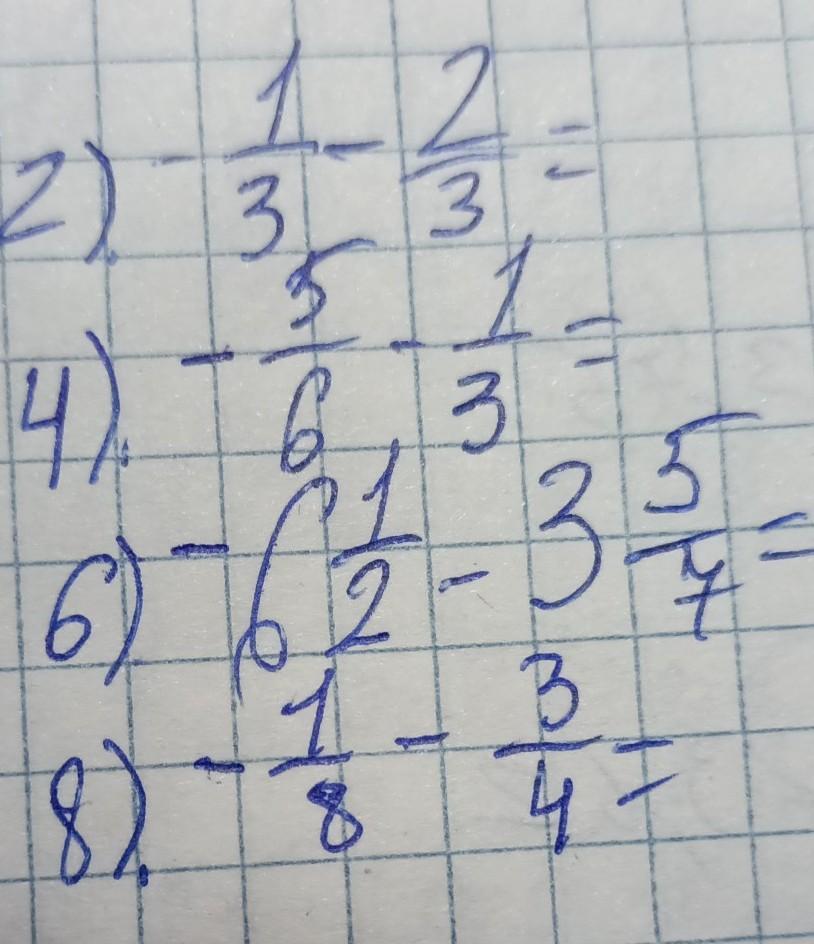 2). - 1/3 - 2/3 =
4). - 5/6 - 1/3 =
6) - 6 1/2 - 3 5/7 =
8). - 1/8 - 3/4 =